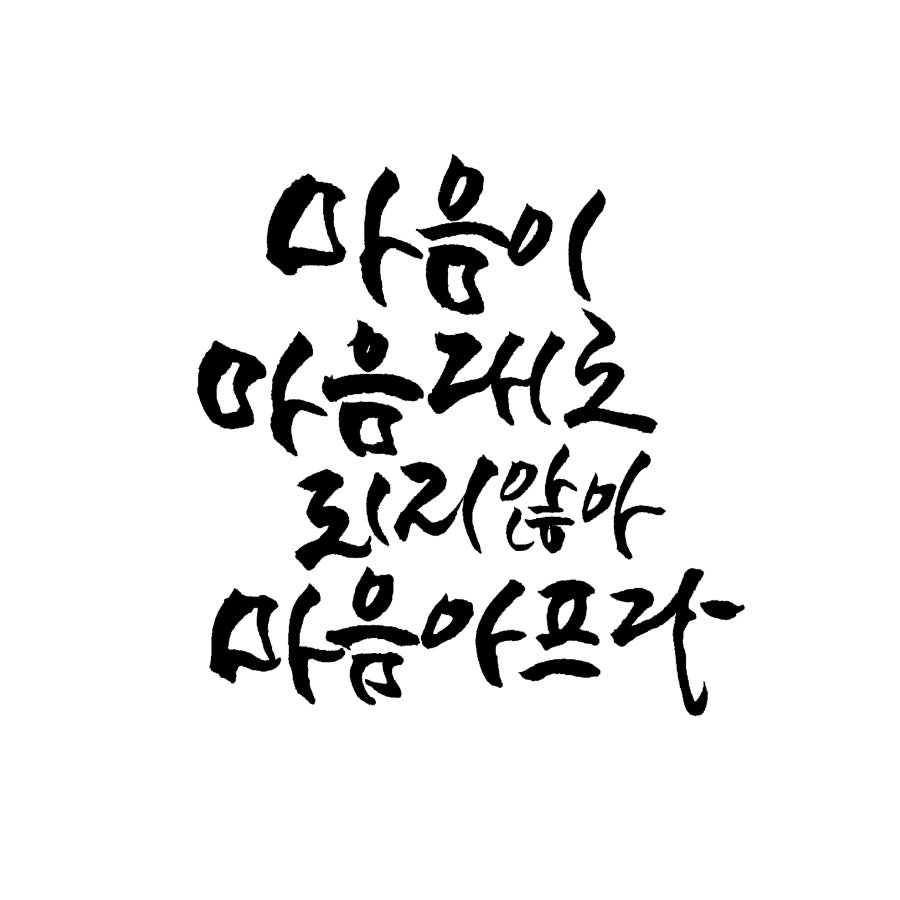 마음이
마음대로
되지않아
마음아프라